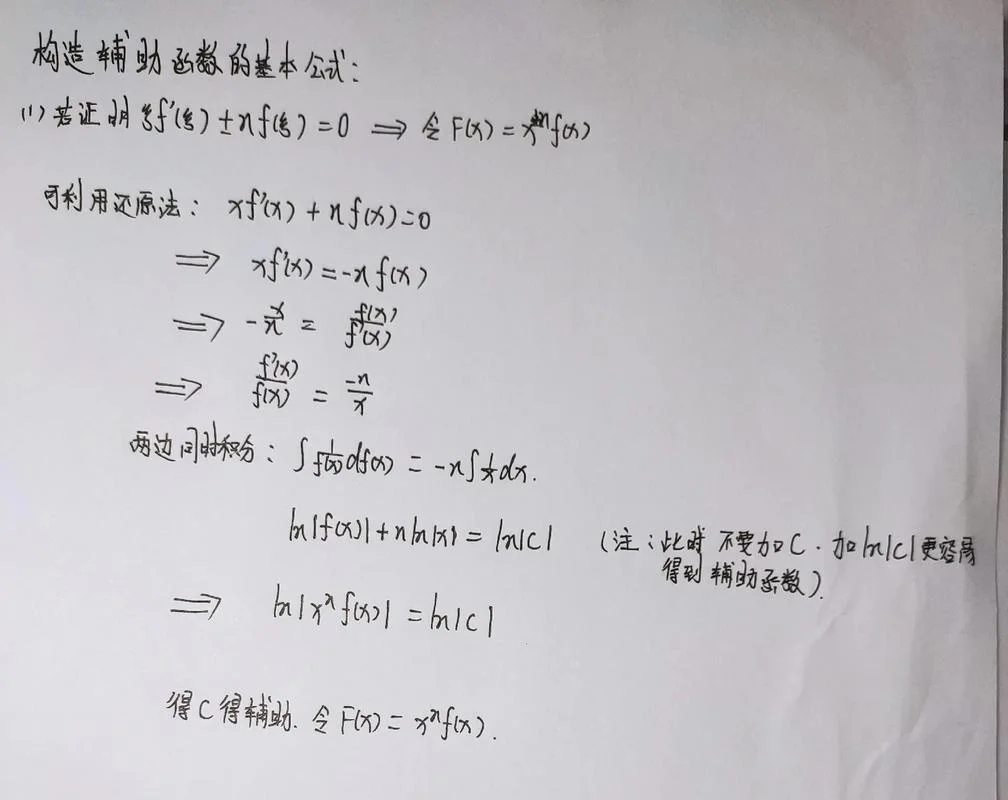 构造辅助函数的基本公式:
(1) 若证明 ξf'(ξ)±nf(ξ)=0 ⟹ 令 F(x)=x^{±n}f(x)
可利用还原法: xf'(x)+nf(x)=0
⟹ xf'(x)=-nf(x)
⟹ -x/n = f(x)/f'(x)
⟹ f'(x)/f(x) = -n/x
两边同时积分: ∫1/f(x) df(x) = -n∫1/x dx.
ln|f(x)|+nln|x|=ln|C| (注:此时不要加C.加ln|C|更容易
得到辅助函数).
⟹ ln|x^n f(x)|=ln|C|
得C得辅助. 令F(x)=x^n f(x).